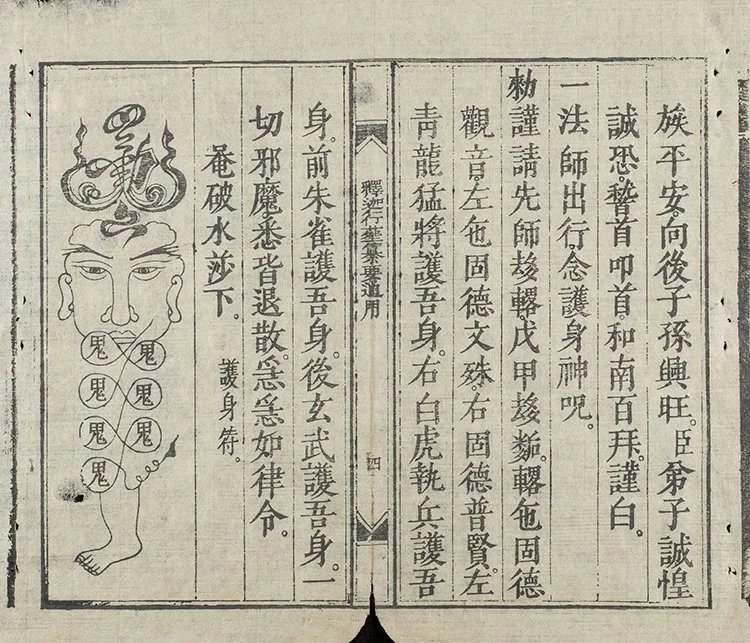 族平安。向後子孫興旺。臣弟子誠惶
誠恐。稽首叩首。和南百拜。謹白。
一法師出行。念護身神呪。
勑謹請先師戊甲固德
觀音。左固德文殊。右固德普賢。左
青龍猛將護吾身。右白虎執兵護吾
釋迦行藝纂要通用
四
身。前朱雀護吾身。後玄武護吾身。一
切邪魔。悉皆退散。急急如律令。
菴破水莎下。
護身符。
鬼鬼
鬼鬼
鬼鬼
鬼